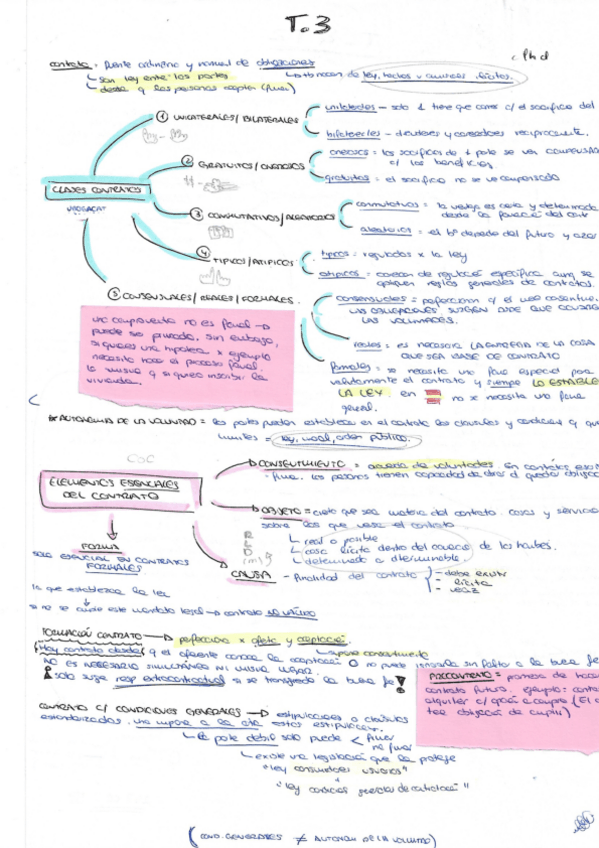 T.3
contrato = fuente ordinaria y normal de obligaciones
son ley entre las partes
nacen de ley, hechos y lícitos.
desde q las personas aceptan (firman)
① UNILATERALES/BILATERALES
unilaterales = solo 1 tiene que correr c/ el sacrificio del
bilaterales = deudores y acreedores recíprocamente.
② GRATUITOS/ONEROSOS
onerosos = los sacrificios de 1 parte se ven COMPENSA
c/ los beneficios.
gratuitos = el sacrificio no se ve compensado
CLASES CONTRATOS
③ CONMUTATIVOS/ALEATORIOS
conmutativos = la ventaja es cierta y determinada
desde la
aleatorios = el bº depende del futuro y azar
④ TIPICOS/ATIPICOS
típicos = regulados x la ley
atípicos = carecen de regulación específica aunq se
apliquen reglas generales de contratos.
⑤ CONSENSUALES/REALES/FORMALES
consensuales = perfeccionan c/ el mero consentim.
LAS OBLIGACIONES SURGEN DESDE QUE
LAS VOLUNTADES.
reales = es necesaria LA ENTREGA DE LA COSA
QUE SEA BASE DE CONTRATO
formales = se necesita una forma especial para
validamente el contrato y siempe LO ESTABLE
LA LEY en no x necesita una forma
general.
una compraventa no es formal →
puede ser privada. Sin embargo,
si quieres una hipoteca x ejemplo
necesita todo el proceso formal.
lo mismo q si quieres inscribir la
vivienda.
* AUTONOMIA DE LA VOLUNTAD = las partes pueden establecer en el contrato las clausulas y condiciones q
limites = ley, moral, orden público.
COC
ELEMENTOS ESENCIALES
DEL CONTRATO
CONSENTIMIENTO = acuerdo de voluntades en contratos
firma. las personas tienen capacidad de obrar q quedar
OBJETO = cierto que sea materia del contrato. cosas y servicio
sobre las que versa el contrato
real o posible
cosa lícita dentro del comercio de los hombres.
determinada o determinable.
FORMA
SOLO ESENCIAL EN CONTRATOS
FORMALES
CAUSA - finalidad del contrato
- debe existir
- lícita
- veraz
lo que establezca la ley
si no se cumple este mandato legal → contrato NO VÁLIDO
FORMACIÓN CONTRATO → perfecciona x oferta y aceptación.
supone consentimiento
Hay contrato desde q el oferente conoce la aceptación O no puede ignorarla sin faltar a la buena fe
NO ES NECESARIO SIMULTÁNEO NI MISMO LUGAR.
solo surge resp extracontractual si se transgrede la buena fe
PRECONTRATO = promesa de
contrato futuro. ejemplo: contra
alquiler c/ opción a compra (El
tiene obligación de cumplir)
CONTRATO C/ CONDICIONES GENERALES → estipulaciones o cláusulas
estandarizadas. Una impone a la otra estas estipulaciones.
la parte debil solo puede firmar
no firmar
existe una legislación que la protege
"ley consumidores usuarios"
"ley condiciones generales de contratación"
(COND. GENERALES ≠ AUTONOM DE LA VOLUNTAD)